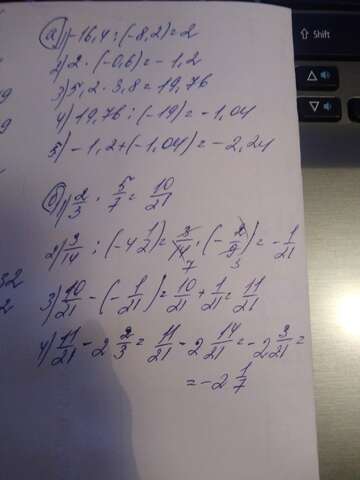 а) 1) -16,4 : (-8,2) = 2
2) 2 · (-0,6) = -1,2
3) 5,2 · 3,8 = 19,76
4) 19,76 : (-19) = -1,04
5) -1,2 + (-1,04) = -2,24
б) 1) 2/3 · 5/7 = 10/21
2) 3/14 : (-4 1/2) = 3/14 · (-2/9) = -1/21
7 3
3) 10/21 - (-1/21) = 10/21 + 1/21 = 11/21
4) 11/21 - 2 2/3 = 11/21 - 2 14/21 = -2 3/21 =
= -2 1/7
Shift